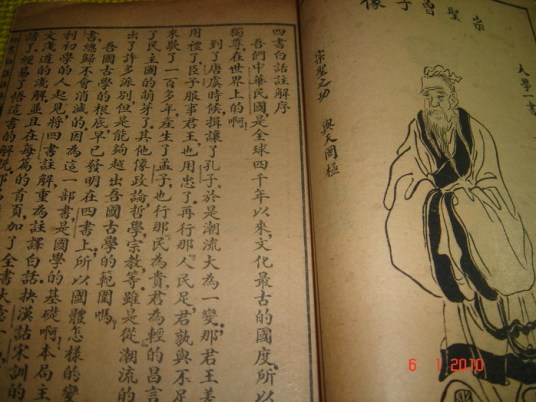 宗聖曾子像
大學一書
宗聖之功 與天罔極
四書白話註解序
吾們中華民國,是全球四千年以來,文化最古的國度,所以
獨尊在世界上的啊
到了唐虞時候揖讓了,孔子,於是潮流大為一變,那君王若
用禮了,臣子服事君王,也用忠了,再行那人民足,君孰與不足
來,歇了一百多年,產生了孟子,也行那民為貴,君為輕的昌言
了民主國的萌芽了,其他像政論,哲學,宗教,等,雖是從潮流的
出了許多派別,但是能夠越出吾國古學的範圍嗎
吾國古學的根底,早已發明在四書上,所以國體怎樣的變
書總歸不會消滅的,因為這一部書,是國學的基礎啊,本局主
利初學的人起見,將四書註解,重為註譯白話,抉漢話宋訓的
文淺道的淺解,並且在每篇的首頁,加了全書大意
6 1 2010